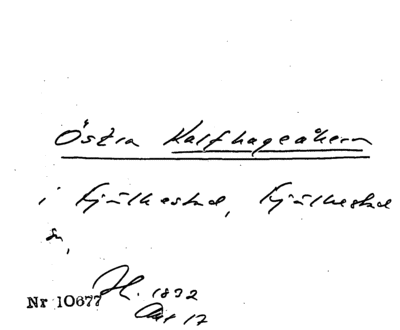 Östra Kalfhageåkern
i Fjälkestad, Fjälkestad
sn,
Nr 10677 H. 1832
Akt 17